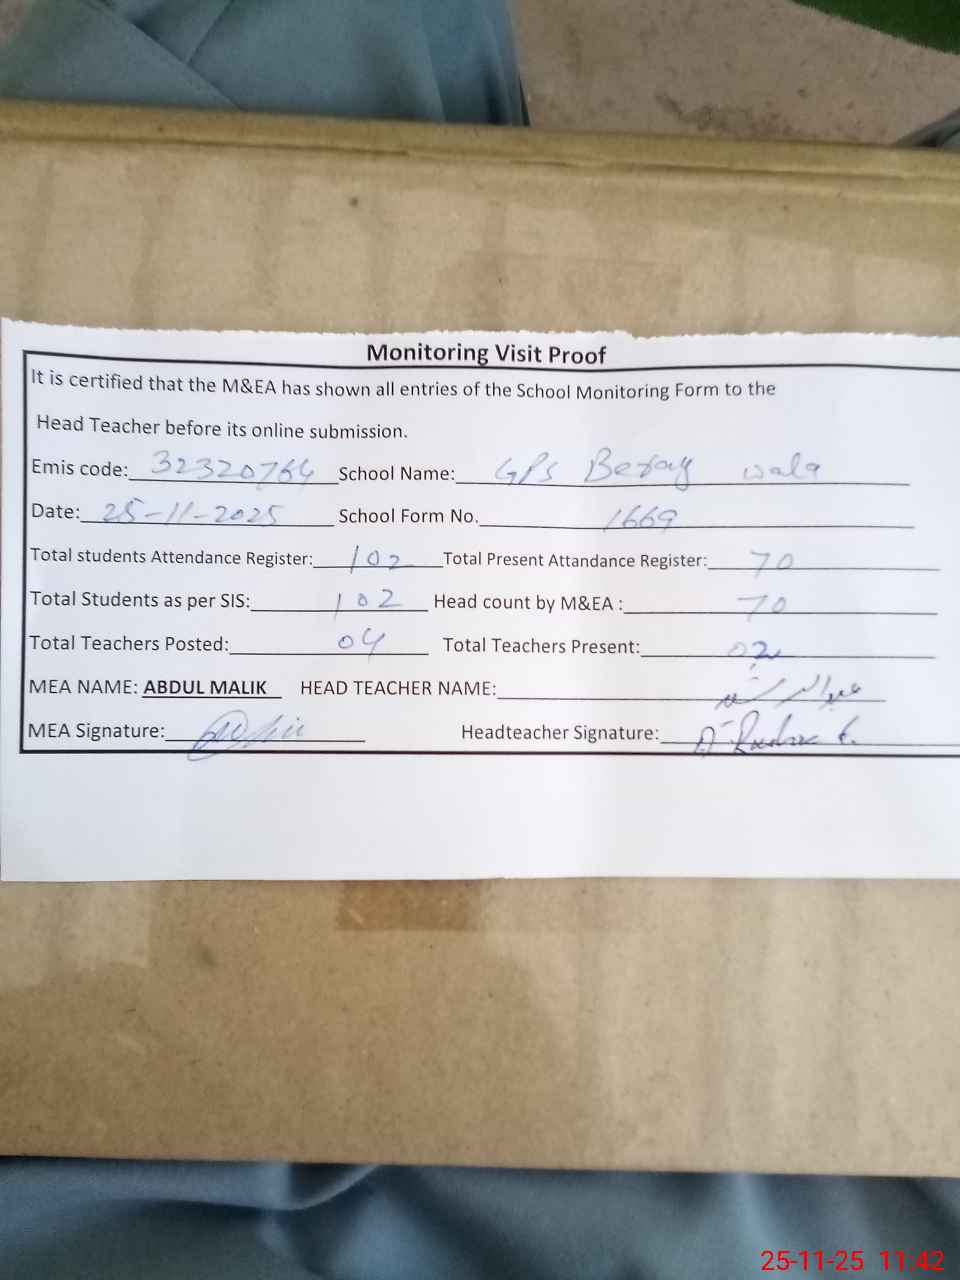 Monitoring Visit Proof
It is certified that the M&EA has shown all entries of the School Monitoring Form to the
Head Teacher before its online submission.
Emis code: 32320764 School Name: GPS Beray wala
Date: 25-11-2025 School Form No. 1669
Total students Attendance Register: 102 Total Present Attandance Register: 70
Total Students as per SIS: 102 Head count by M&EA : 70
Total Teachers Posted: 04 Total Teachers Present: 02
MEA NAME: ABDUL MALIK HEAD TEACHER NAME: عبدالرشید
MEA Signature: Headteacher Signature:
25-11-25 11:42